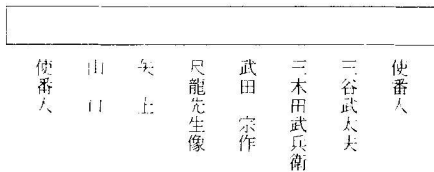 使番人
三谷武太夫
三木田武兵衛
武田 宗作
呉龍先生像
矢上
山口
使番人